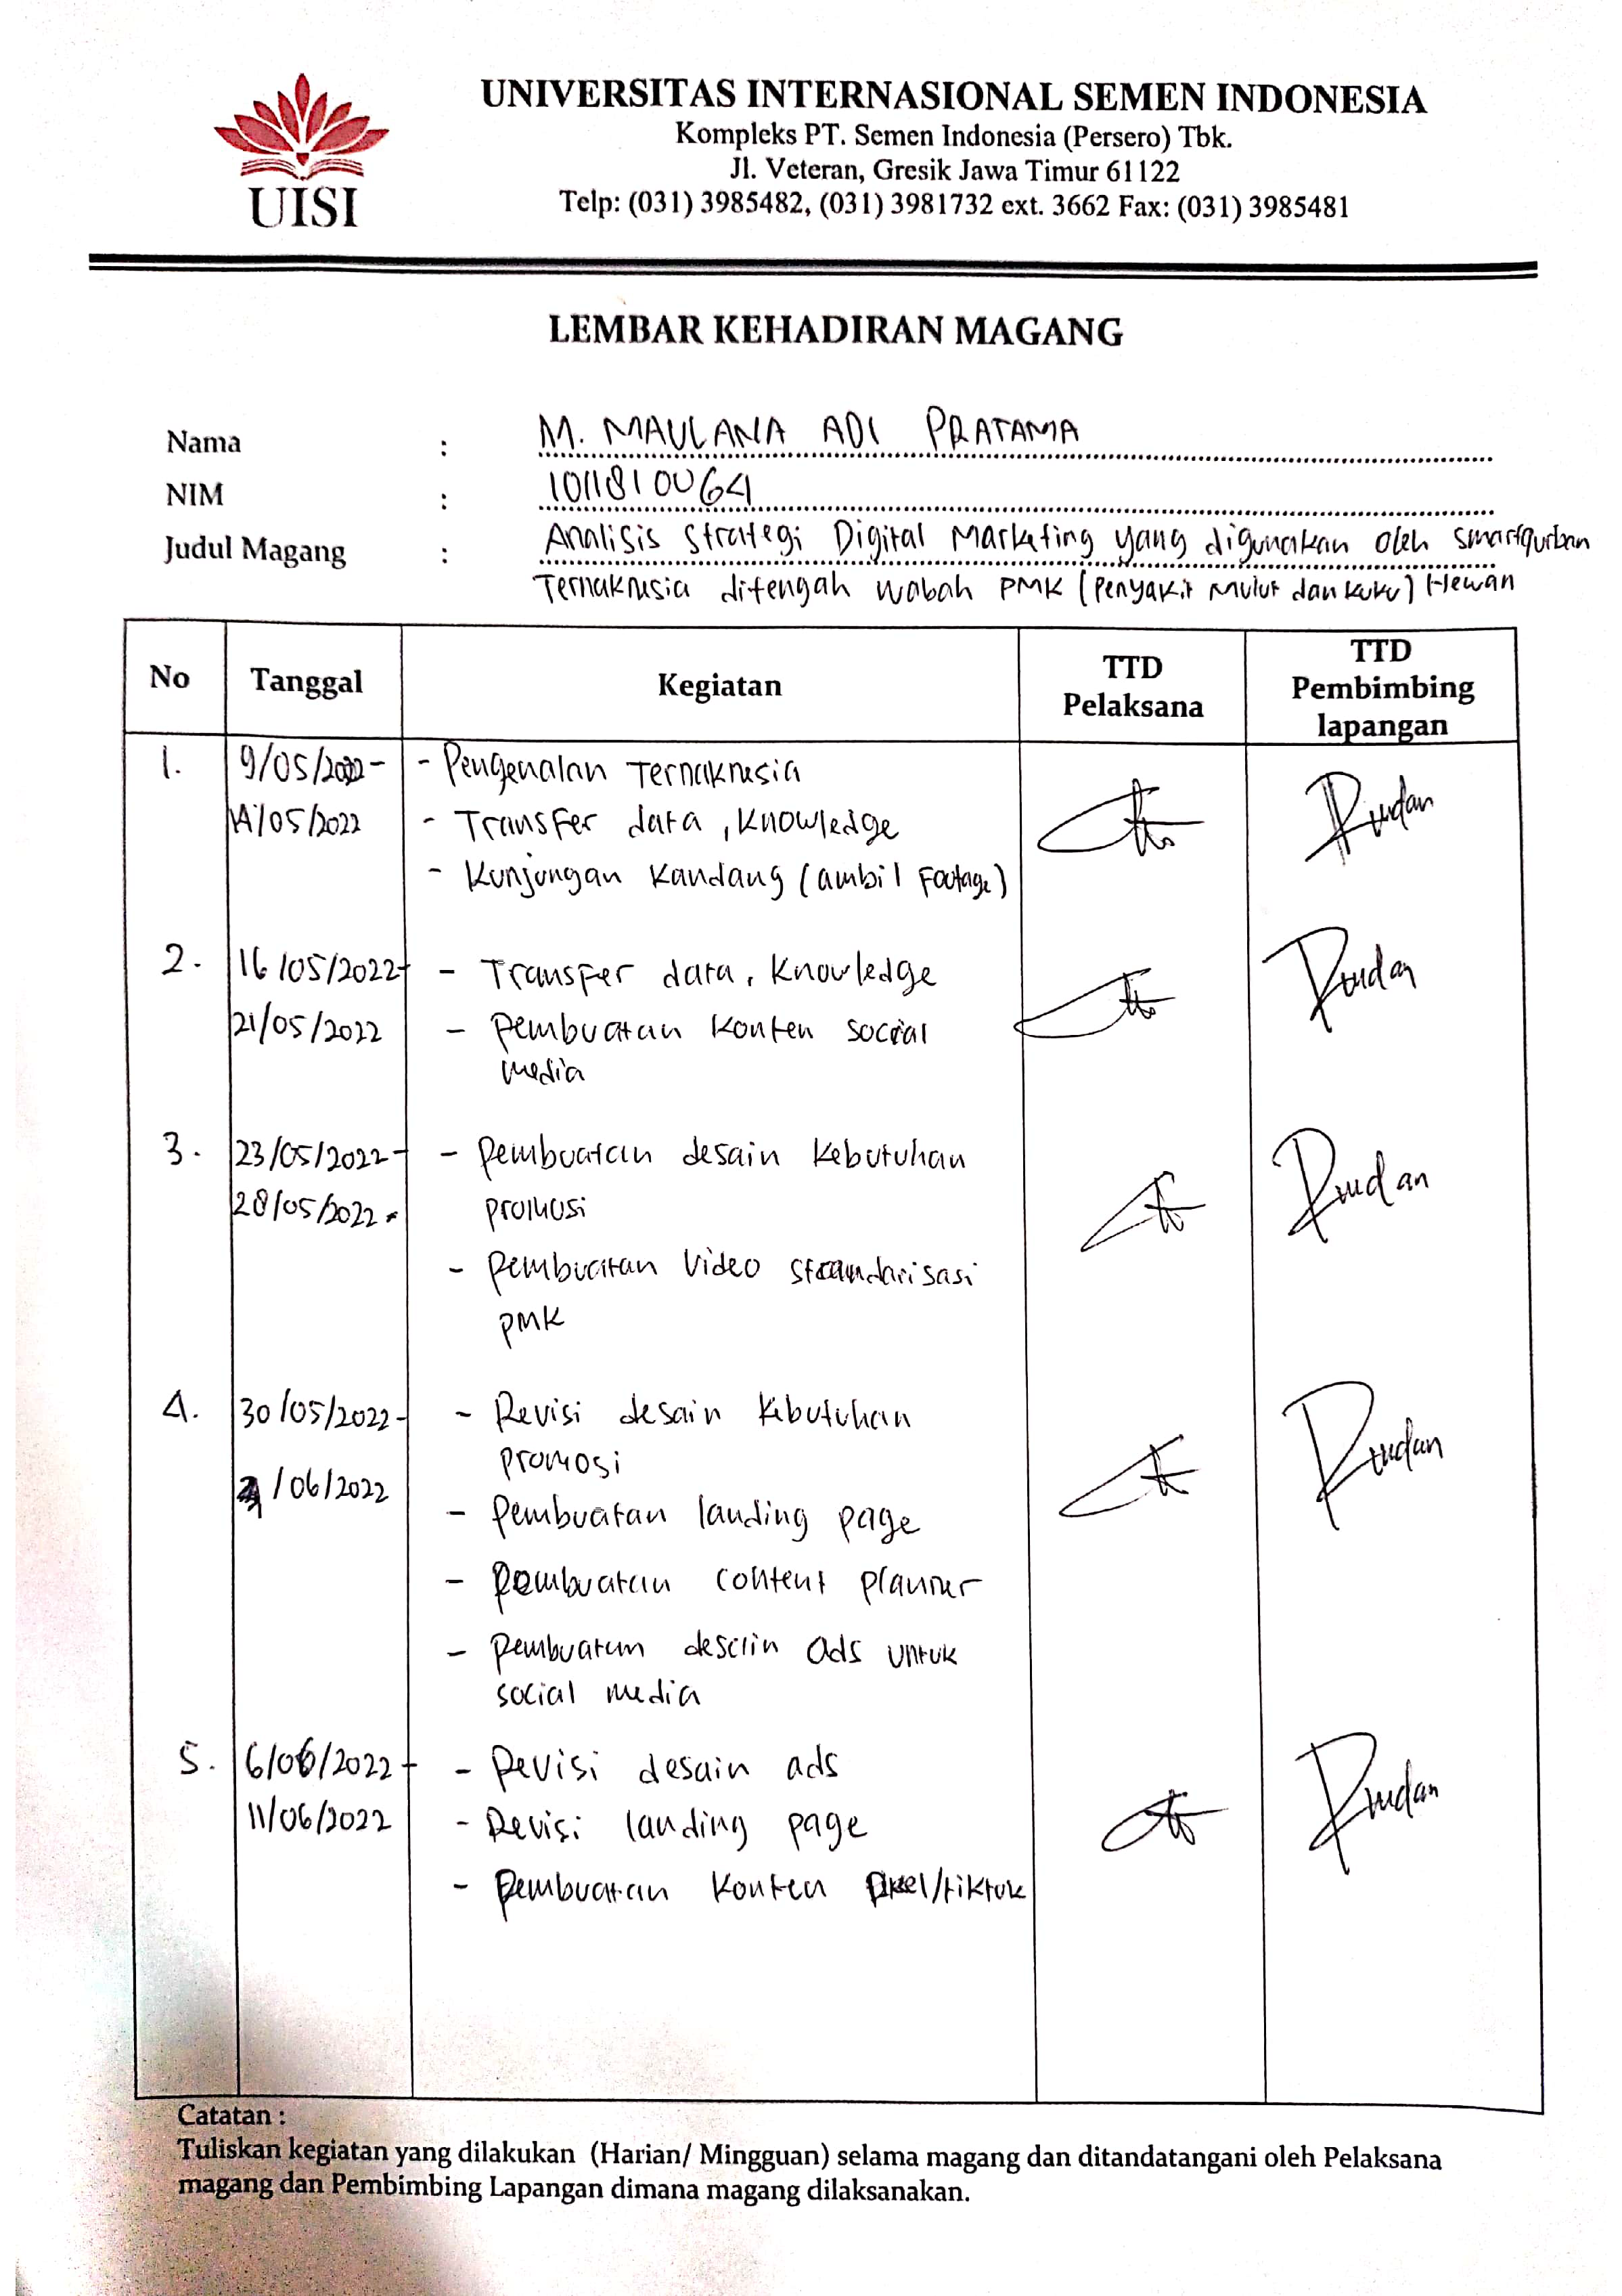 UNIVERSITAS INTERNASIONAL SEMEN INDONESIA
Kompleks PT. Semen Indonesia (Persero) Tbk.
Jl. Veteran, Gresik Jawa Timur 61122
Telp: (031) 3985482, (031) 3981732 ext. 3662 Fax: (031) 3985481
UISI
LEMBAR KEHADIRAN MAGANG
Nama : M. MAULANA ADI PRATAMA
NIM : 1011810064
Judul Magang : Analisis Strategi Digital Marketing yang digunakan oleh smartqurban
Ternaknesia ditengah wabah PMK (Penyakit Mulut dan Kuku) Hewan
No Tanggal Kegiatan TTD Pelaksana TTD Pembimbing lapangan
1. 9/05/2022 - - Pengenalan Ternaknesia
14/05/2022 - Transfer data, Knowledge
- Kunjungan Kandang (ambil Footage)
2. 16/05/2022 - - Transfer data, Knowledge
21/05/2022 - Pembuatan Konten social
media
3. 23/05/2022 - - Pembuatan desain Kebutuhan
28/05/2022 promosi
- Pembuatan Video standarisasi
PMK
4. 30/05/2022 - - Revisi desain Kebutuhan
promosi
/06/2022
- Pembuatan landing page
- Pembuatan content planner
- Pembuatan desain ads untuk
social media
5. 6/06/2022 - - Revisi desain ads
11/06/2022 - Revisi landing page
- Pembuatan Konten reel/tiktok
Catatan :
Tuliskan kegiatan yang dilakukan (Harian/ Mingguan) selama magang dan ditandatangani oleh Pelaksana
magang dan Pembimbing Lapangan dimana magang dilaksanakan.